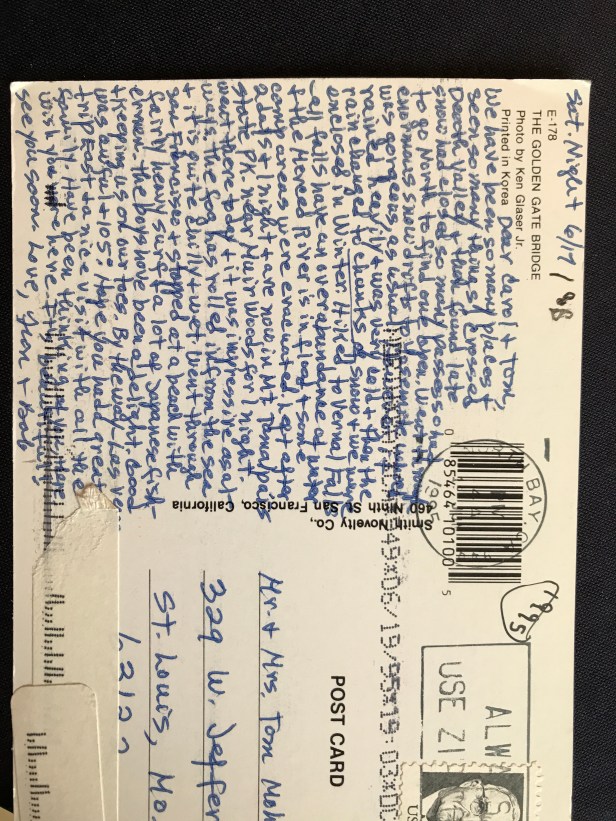 E-178
THE GOLDEN GATE BRIDGE
Photo by Ken Glaser Jr.
Printed in Korea
Sat. Night 6/17/
Dear Carol & Tom,
We have been so many places &
seen so many things! Crossed
Death Valley & then found late
snow had closed so many passes so had
to go North to find one open. Went thru
enormous snowdrifts. Yosemite
was gorgeous, as usual
rained heavily & was very cold & then the
rain changed to chunks of snow & we were
enclosed in Winter. Hiked to Vernal Falls
- all falls have an overabundance of water
& the Merced River is in flood & some
camp areas were evacuated. Left after
2 days & 1 night & are now in Mt. Tamalpais
State Pk. near Muir Woods for 1 night.
Went there today & it was impressive as it
was. The fog has rolled in from the sea
& it is quite chilly & wet. Went through
San Francisco & stopped at a beach with
fairly heavy surf & a lot of Japanese fish-
ermen. The boys have been a delight. Good
& keeping us on our toes. By the way, Las Ve
was awful & 105°! Hope you had a great
trip East & a nice visit with all the
family. Have been thinking
Wish you were here.
See you soon. Love, Jean & Bob
0 85464 10100 5
Smith Novelty Co.,
460 Ninth St. San Francisco, California
BAY
1995
1995
49*06/19/95*19:03*DC
POST CARD
ALWA
USE ZI
US
Mr. & Mrs. Tom
329 W. Jeffer
St. Louis, Mo.